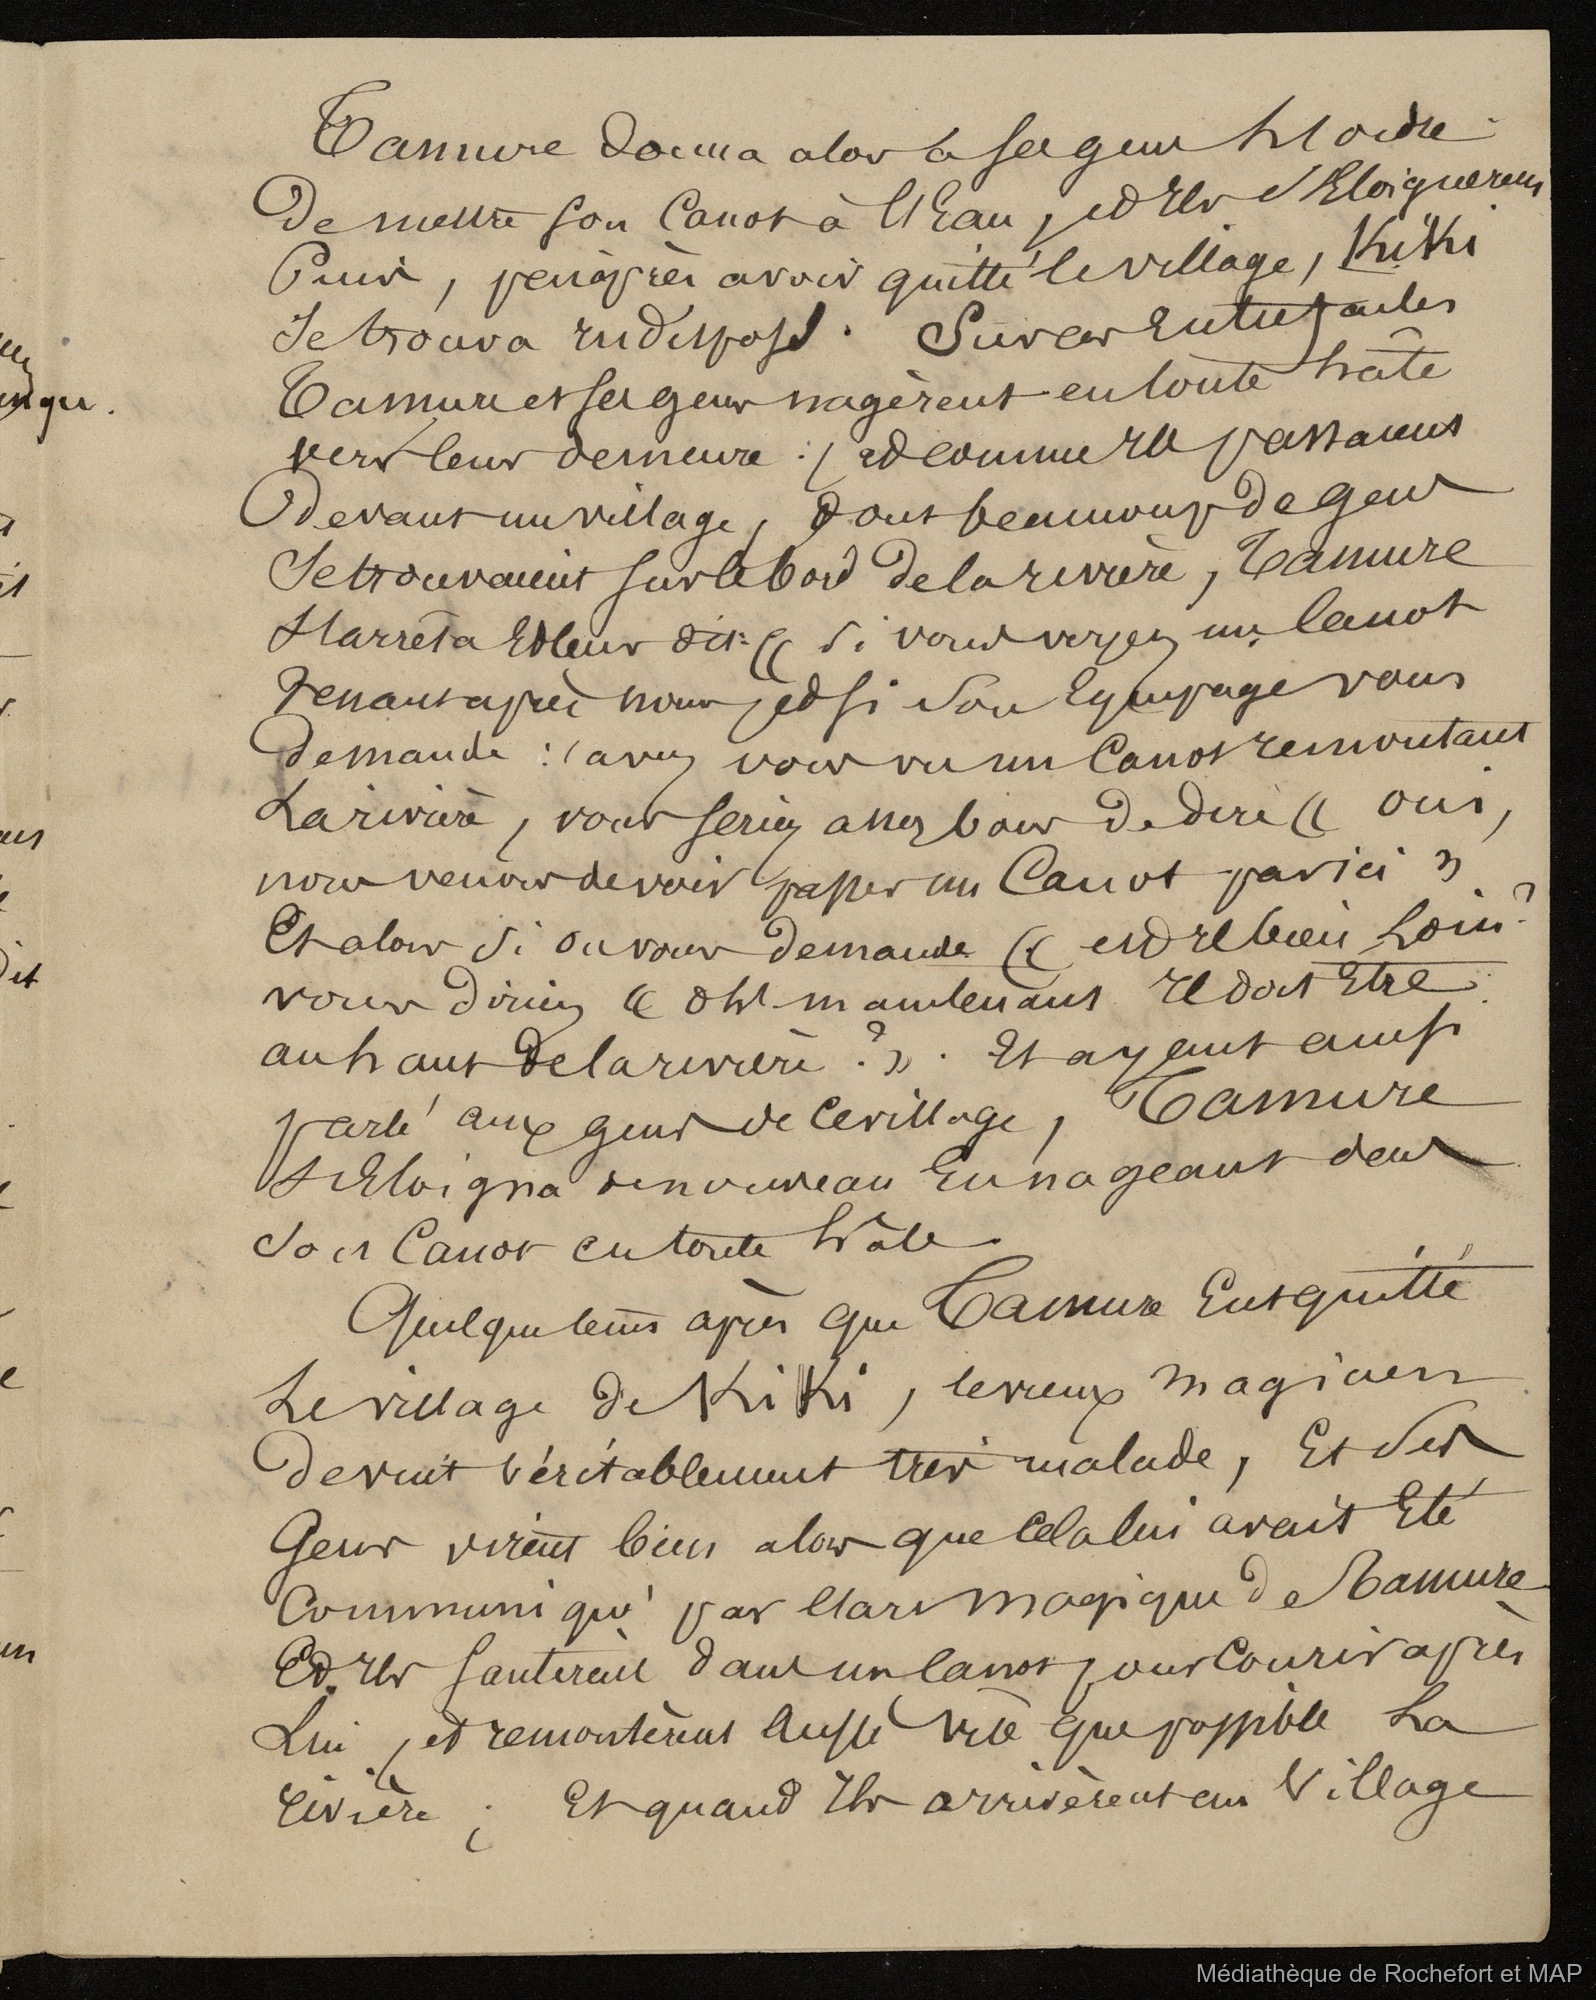 Tamure donna alors à ses gens l'ordre
De mettre son Canot à l'Eau, et Ils s'Eloignèrent
Puis, peu après avoir quitté le village, KiKi
Se trouva Indisposé. Sur ces Entrefaites
Tamure et ses gens nagèrent en toute hâte
vers leur demeure : et comme Ils passaient
Devant un village, dont beaucoup de gens
Se trouvaient sur le bord De la rivière, Tamure
S'arrêta Et leur dit : « Si vous voyez un Canot
Venant après nous, et si Son Equipage vous
Demande : avez vous vu un Canot remontant
La rivière, vous seriez assez bons De dire « oui,
nous venons de voir passer un Canot par ici »
Et alors Si on vous demande « est Il bien Loin ?
vous diriez « Oh ! maintenant Il doit Etre
au haut De la rivière ? ». Et ayant ainsi
parlé aux gens de Ce village, Tamure
S'Eloigna de nouveau En nageant dans
Son Canot en toute hâte.
Quelque tems après que Tamure Eut quitté
Le village de KiKi, le vieux magicien
Devint véritablement très malade, Et Ses
Gens virent bien alors que Cela lui avait Eté
Communiqué par l'art magique de Tamure
Et Ils sautèrent dans un Canot pour Courir après
Lui, et remontèrent Aussi vite que possible La
rivière ; Et quand Ils arrivèrent au Village
Médiathèque de Rochefort et MAP